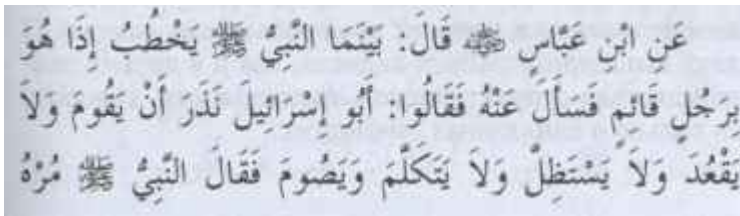 عَنِ ابْنِ عَبَّاسٍ ﵁ قَالَ: بَيْنَمَا النَّبِيُّ ﷺ يَخْطُبُ إِذَا هُوَ
بِرَجُلٍ قَائِمٍ فَسَأَلَ عَنْهُ فَقَالُوا: أَبُو إِسْرَائِيلَ نَذَرَ أَنْ يَقُومَ وَلاَ
يَقْعُدَ وَلاَ يَسْتَظِلَّ وَلاَ يَتَكَلَّمَ وَيَصُومَ فَقَالَ النَّبِيُّ ﷺ مُرْهُ